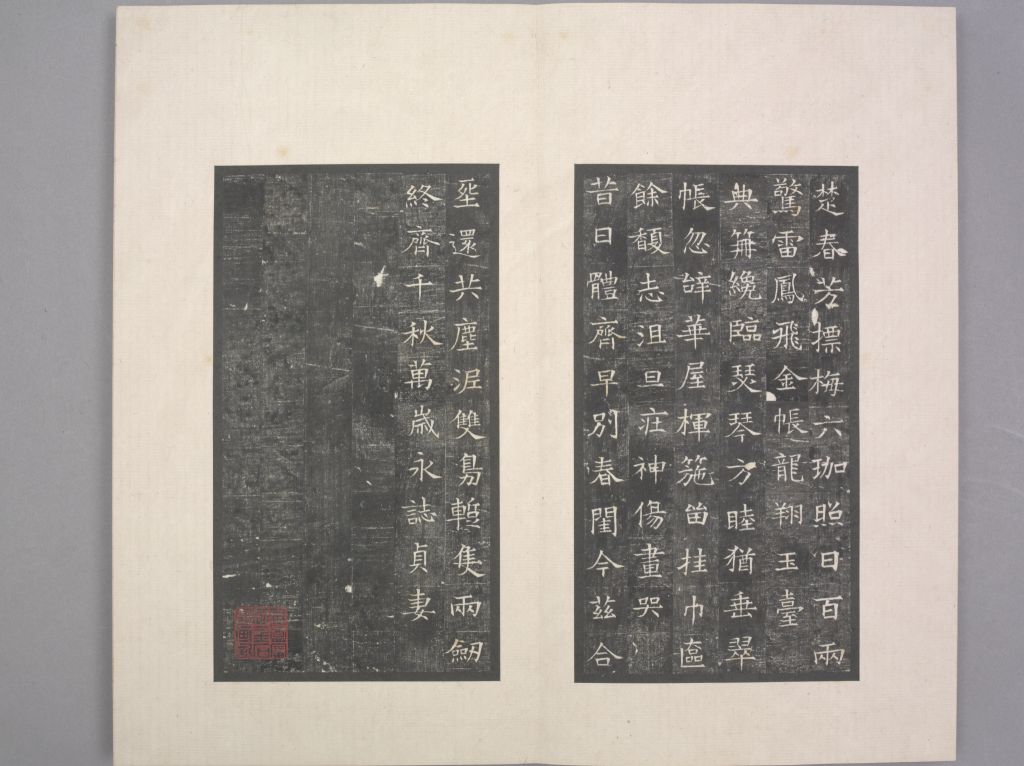 楚春芳摽梅六珈照日百兩
驚雷鳳飛金帳龍翔玉臺
典笧纔臨瑟琴方睦猶垂翠
帳忽辝華屋楎箷笛挂巾匳
餘馥志沮旦疰神傷晝哭
昔日體齊早別春閨今茲合
還共塵泥雙鳧暫隻兩劒
終齊千秋萬歲永誌貞妻